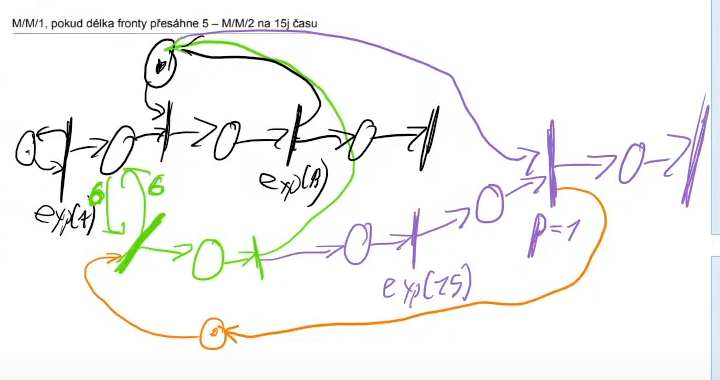 M/M/1, pokud délka fronty přesáhne 5 – M/M/2 na 15j času
exp(A)
6 6
exp(A)
p=1
exp(15)